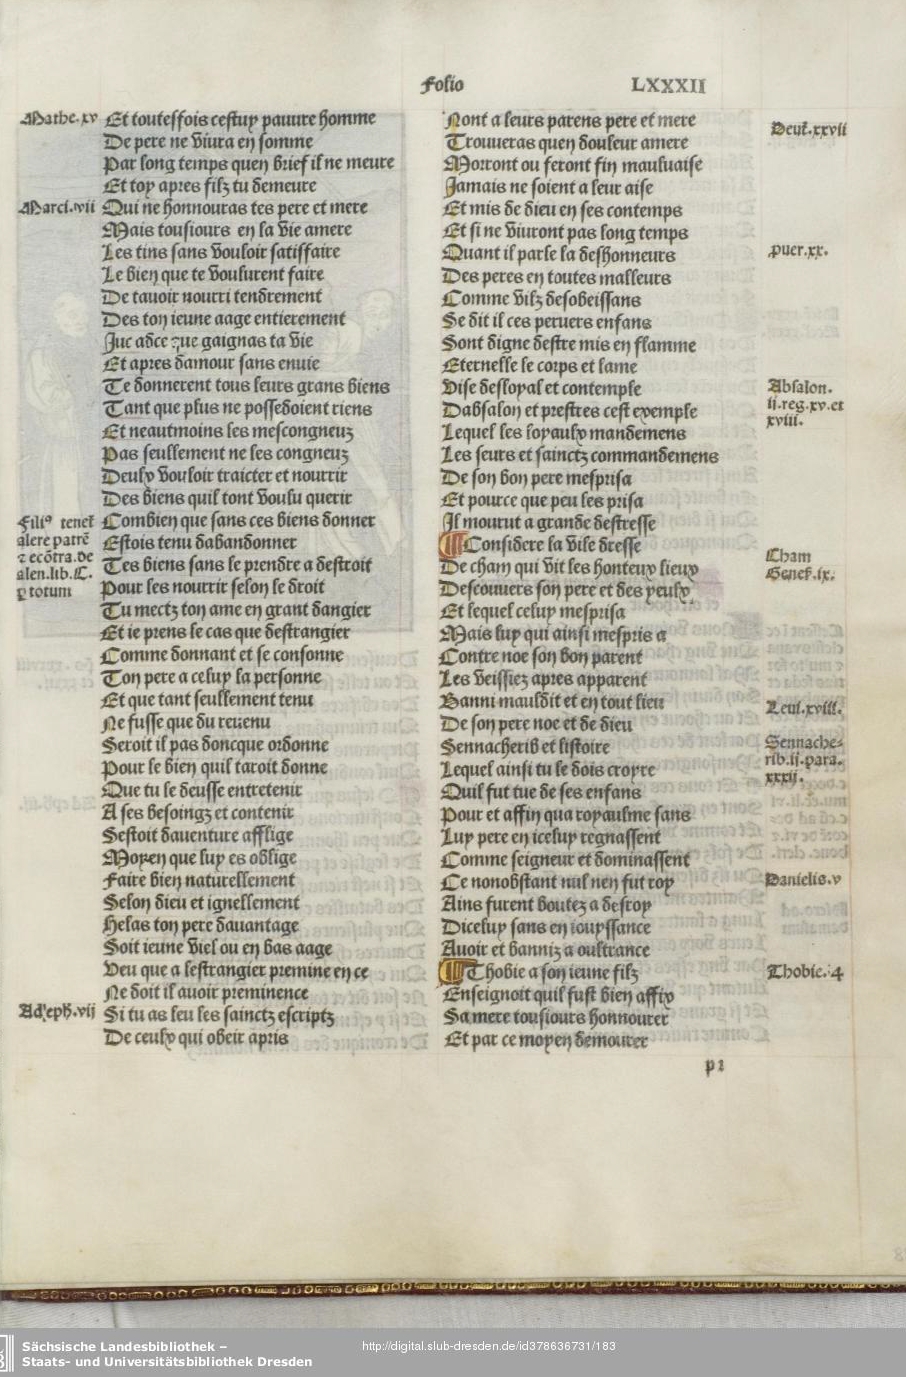 Folio LXXXII
Mathe.xv
Et toutesfois cestuy pauure homme
De pere ne viura en somme
Par long temps quen brief il ne meure
Et toy apres filz tu demeure
Marci.vii
Qui ne honnouras tes pere et mere
Mais tousiours en la vie amere
Les tins sans vouloir satiffaire
Le bien que te voulurent faire
De tauoir nourri tendrement
Des ton ieune aage entierement
Juc adce que gaignas ta vie
Et apres damour sans enuie
Te donnerent tous leurs grans biens
Tant que plus ne possedoient riens
Et neautmoins les mescongneuz
Pas seullement ne les congneuz
Deulx vouloir traicter et nourrir
Des biens quil tont voulu querir
Filiꝰ tenet̉
alere patrē
⁊ ecōtra.de
alen.lib.C.
ꝑ totum
Combien que sans ces biens donner
Estois tenu dabandonner
Tes biens sans le prendre a destroit
Pour les nourrir selon le droit
Tu mectz ton ame en grant dangier
Et ie prens le cas que destrangier
Comme donnant et se consonne
Ton pere a celuy la personne
Et que tant seullement tenu
Ne fusse que du reuenu
Seroit il pas doncque ordonne
Pour le bien quil taroit donne
Que tu le deusse entretenir
A ses besoingz et contenir
Sestoit dauenture afflige
Moyen que luy es oblige
Faire bien naturellement
Selon dieu et ignellement
Helas ton pere dauantage
Soit ieune viel ou en bas aage
Veu que a lestrangier premine en ce
Ne doit il auoir preminence
Ad'eph.vij
Si tu as leu les sainctz escriptz
De ceulx qui obeir apris
Nont a leurs parens pere et mere
Deut̉.xxvii
Trouueras quen douleur amere
Morront ou feront fin mauluaise
Jamais ne soient a leur aise
Et mis de dieu en ses contemps
Et si ne viuront pas long temps
puer.xx.
Quant il parle la deshonneurs
Des peres en toutes malleurs
Comme vilz desobeissans
Se dit il ces peruers enfans
Sont digne destre mis en flamme
Eternelle le corps et lame
Absalon.
ij.reg.xv.et
xviii.
Vise desloyal et contemple
Dabsalon et prestres cest exemple
Lequel les loyaulx mandemens
Les seurs et sainctz commandemens
De son bon pere mesprisa
Et pource que peu les prisa
Il mourut a grande destresse
Considere la vile dresse
Cham
Genes̉.ix.
De cham qui vit les honteux lieux
Descouuers son pere et des yeulx
Et lequel celuy mesprisa
Mais luy qui ainsi mespris a
Contre noe son bon parent
Les veissiez apres apparent
Leui.xviii.
Banni mauldit et en tout lieu
De son pere noe et de dieu
Sennache-
rib.ij.para.
xxxij.
Sennacherib et listoire
Lequel ainsi tu le dois croyre
Quil fut tue de ses enfans
Pour et affin qua royaulme sans
Luy pere en iceluy regnassent
Comme seigneur et dominassent
Danielis.v
Ce nonobstant nul nen fut roy
Ains furent boutez a desroy
Diceluy sans en iouyssance
Auoir et banniz a oultrance
Thobie.4
Thobie a son ieune filz
Enseignoit quil fust bien affix
Sa mere tousiours honnourer
Et par ce moyen demourer
p2
Sächsische Landesbibliothek –
Staats- und Universitätsbibliothek Dresden
http://digital.slub-dresden.de/id378636731/183